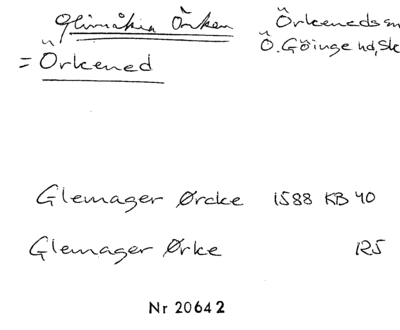 Glimåkra Örken Örkenedssn
= Örkened Ö. Göinge hd, Sk
Glemager Ørcke 1588 KB 40
Glemager Ørke 125
Nr 20642